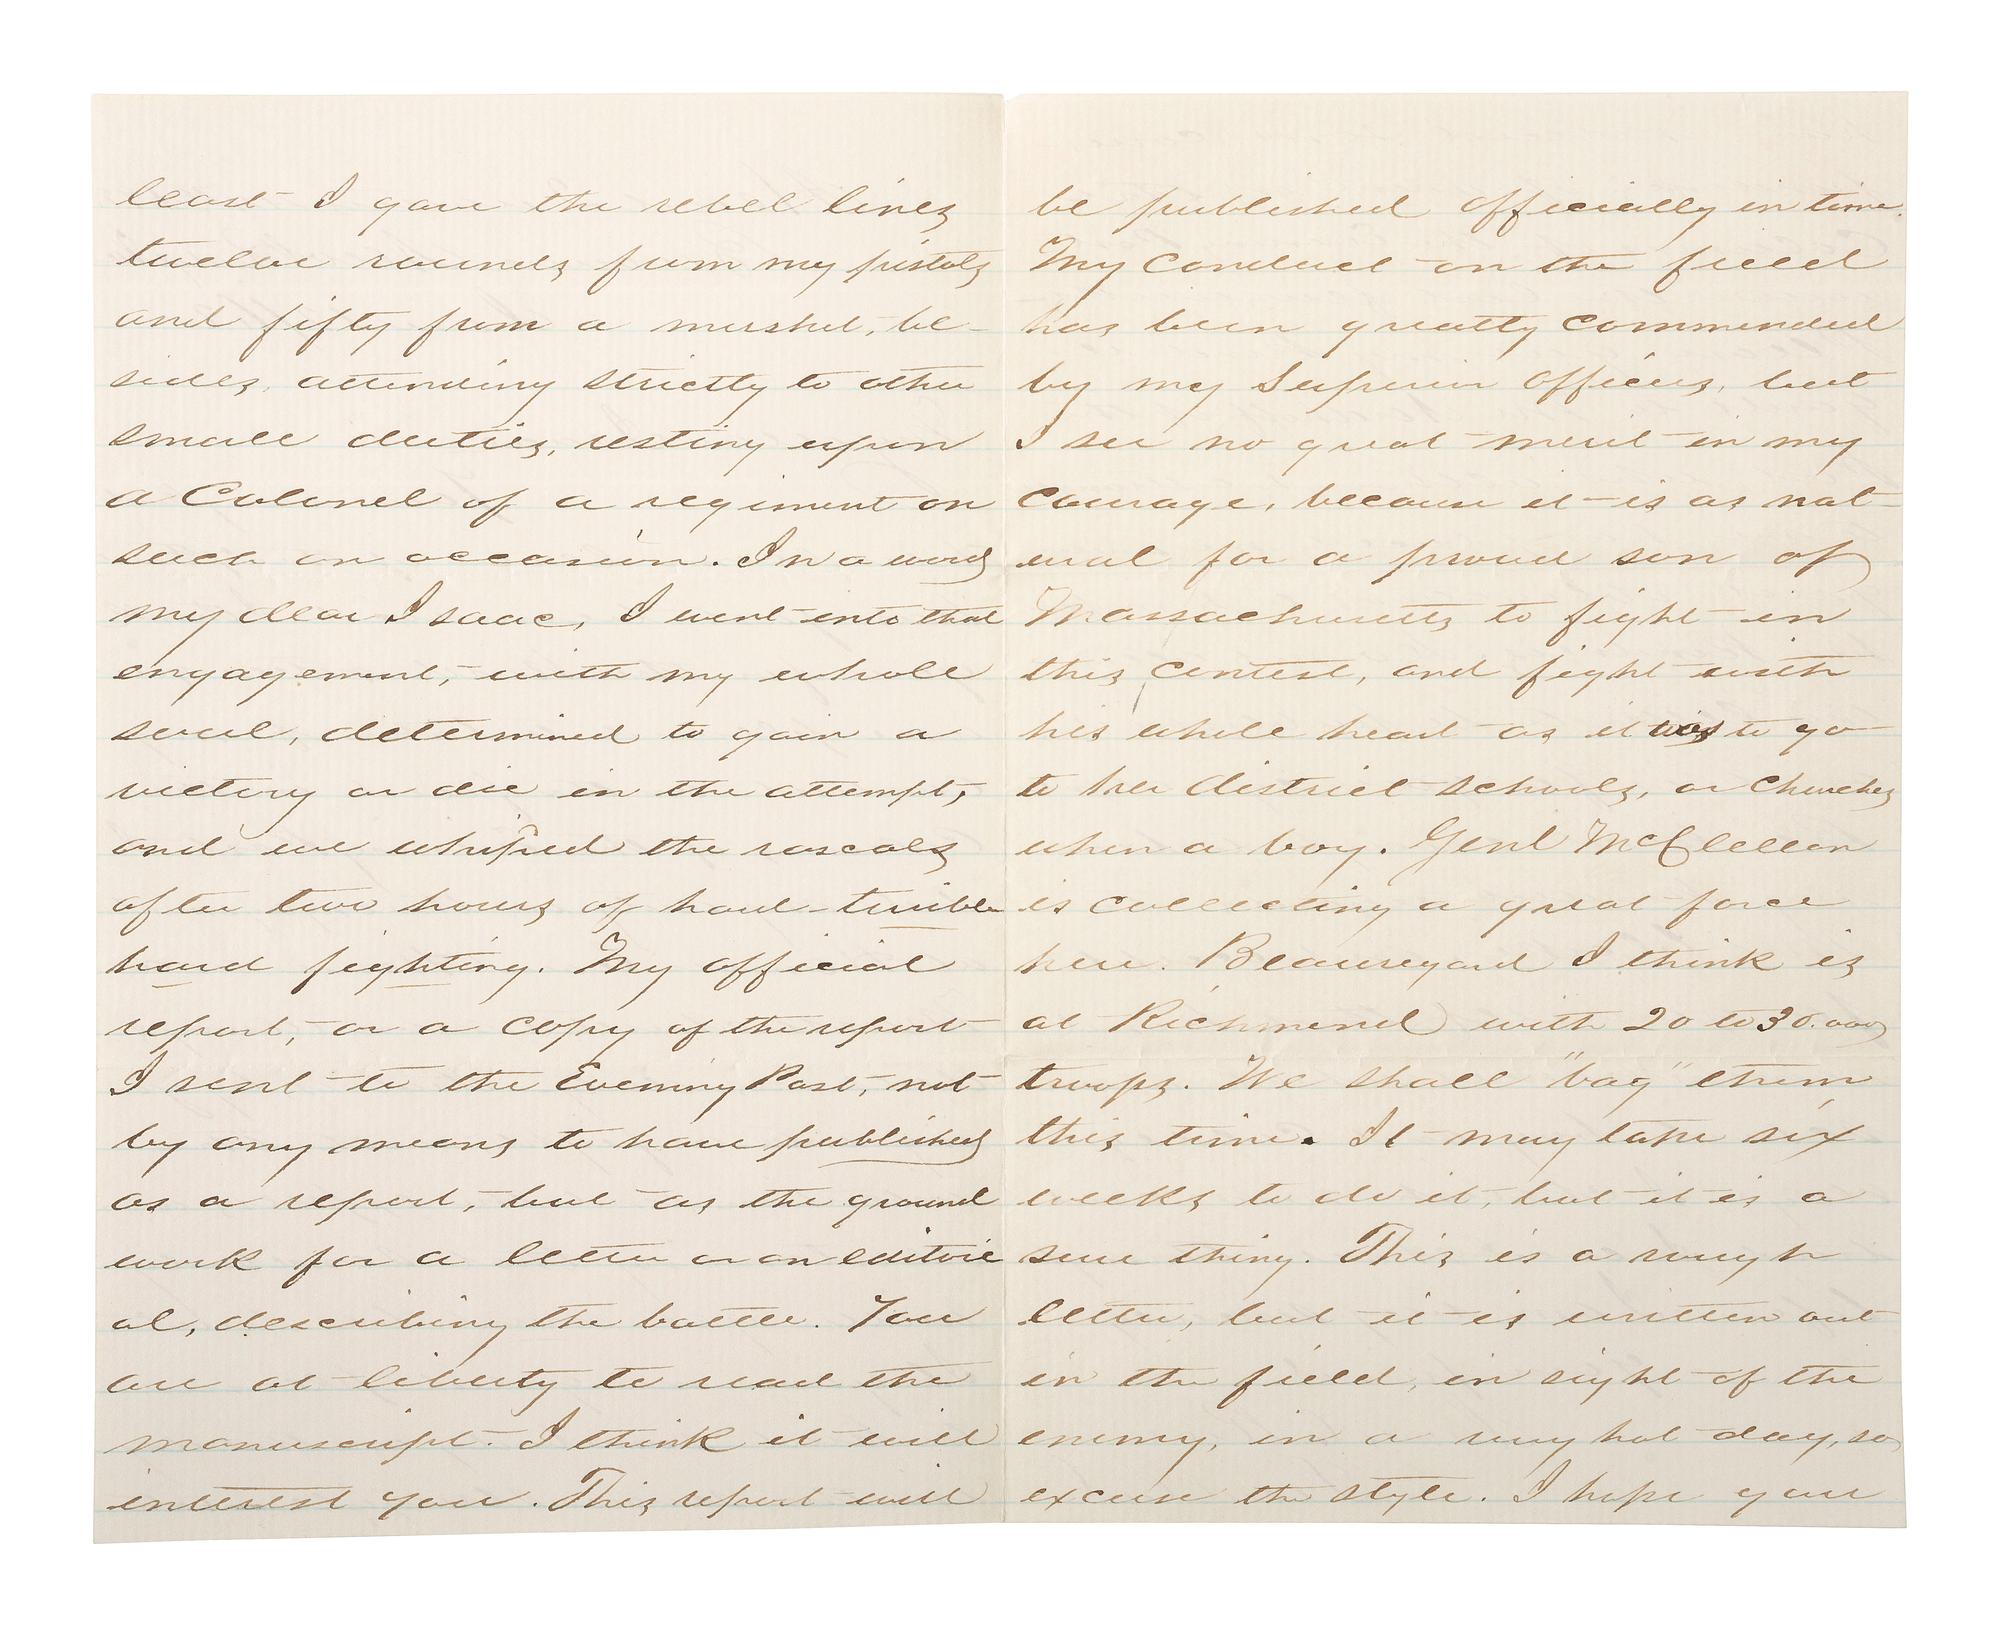 least I gave the rebel lines
twelve rounds from my pistols
and fifty from a musket, be-
sides, attending strictly to other
small duties, resting upon
a Colonel of a regiment on
such an occasion. In a word
my dear Isaac, I went into that
engagement, with my whole
soul, determined to gain a
victory or die in the attempt,
and we whipped the rascals
after two hours of hard - terrible
hard fighting. My official
report, or a copy of the report
I sent to the Evening Post, not
by any means to have published
as a report, but as the ground
work for a letter or an editori
al, describing the battle. You
are at liberty to read the
manuscript. I think it will
interest you. This report will
be published officially in time.
My conduct on the field
has been greatly commended
by my Superior officers, but
I see no great merit in my
courage, because it is as nat-
ural for a proud son of
Massachusetts to fight in
this contest, and fight with
his whole heart as it was to go
to her district schools, or Churches
when a boy. Genl McClellan
is collecting a great force
here. Beauregard I think is
at Richmond with 20 to 30.000
troops. We shall "bag" them
this time. It may take six
weeks to do it, but it is a
sure thing. This is a rough
letter, but it is written out
in the field, in sight of the
enemy, in a very hot day, so
excuse the style. I hope your